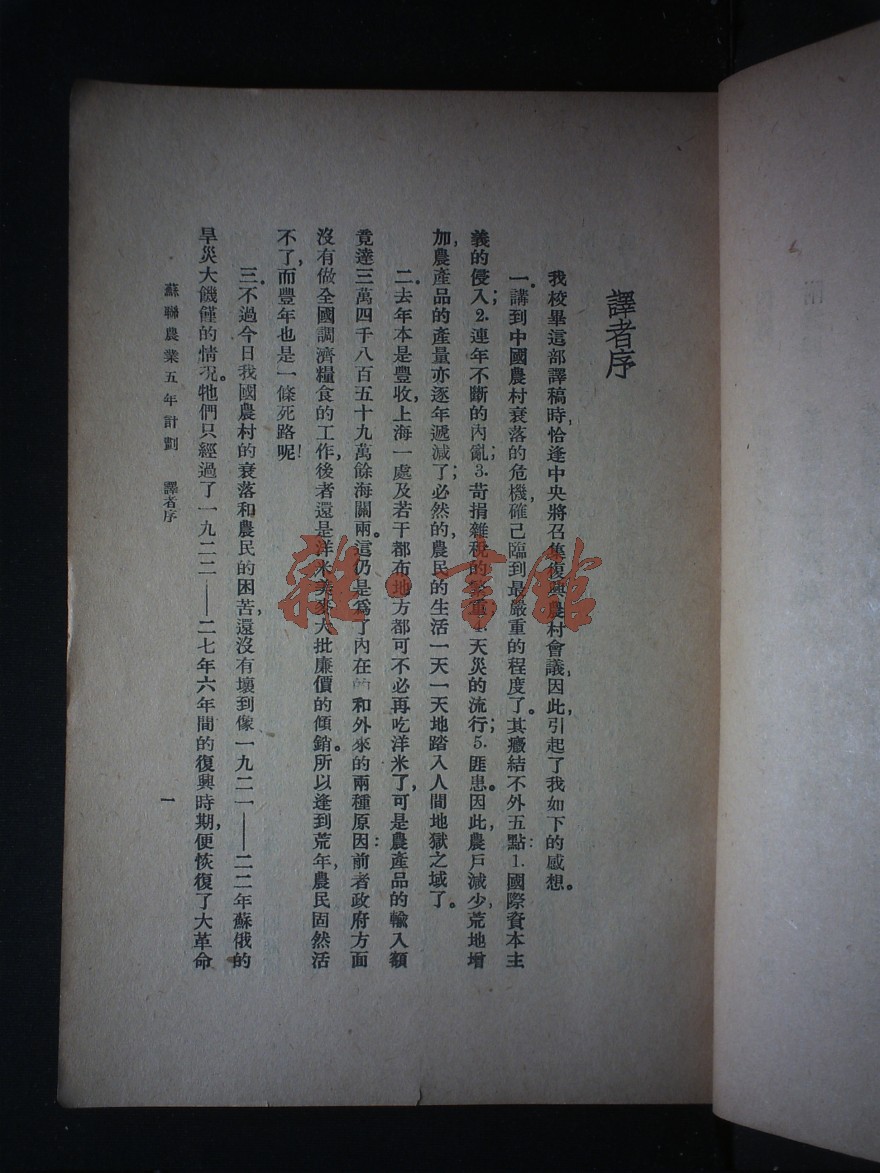 譯者序
我校畢這部譯稿時，恰逢中央將召集復興農村會議，因此，引起了我如下的感想。
一．講到中國農村衰落的危機，確已臨到最嚴重的程度了。其癥結不外五點：1.國際資本主
義的侵入；2.連年不斷的內亂；3.苛捐雜稅的繁重；4.天災的流行；5.匪患。因此，農戶減少，荒地增
加，農產品的產量亦逐年遞減了；必然的，農民的生活一天一天地踏入人間地獄之域了。
二．去年本是豐收，上海一處及若干都布地方都可不必再吃洋米了，可是農產品的輸入額
竟達三萬四千八百五十九萬餘海關兩。這仍是為了內在的和外來的兩種原因：前者政府方面
沒有做全國調濟糧食的工作，後者還是洋米美麥大批廉價的傾銷。所以逢到荒年，農民固然活
不了，而豐年也是一條死路呢！
三．不過今日我國農村的衰落和農民的困苦，還沒有壞到像一九二一——二二年蘇俄的
旱災大饑饉的情況。牠們只經過了一九二二——二七年六年間的復興時期，便恢復了大革命
蘇聯農業五年計劃 譯者序
一
雜·書館